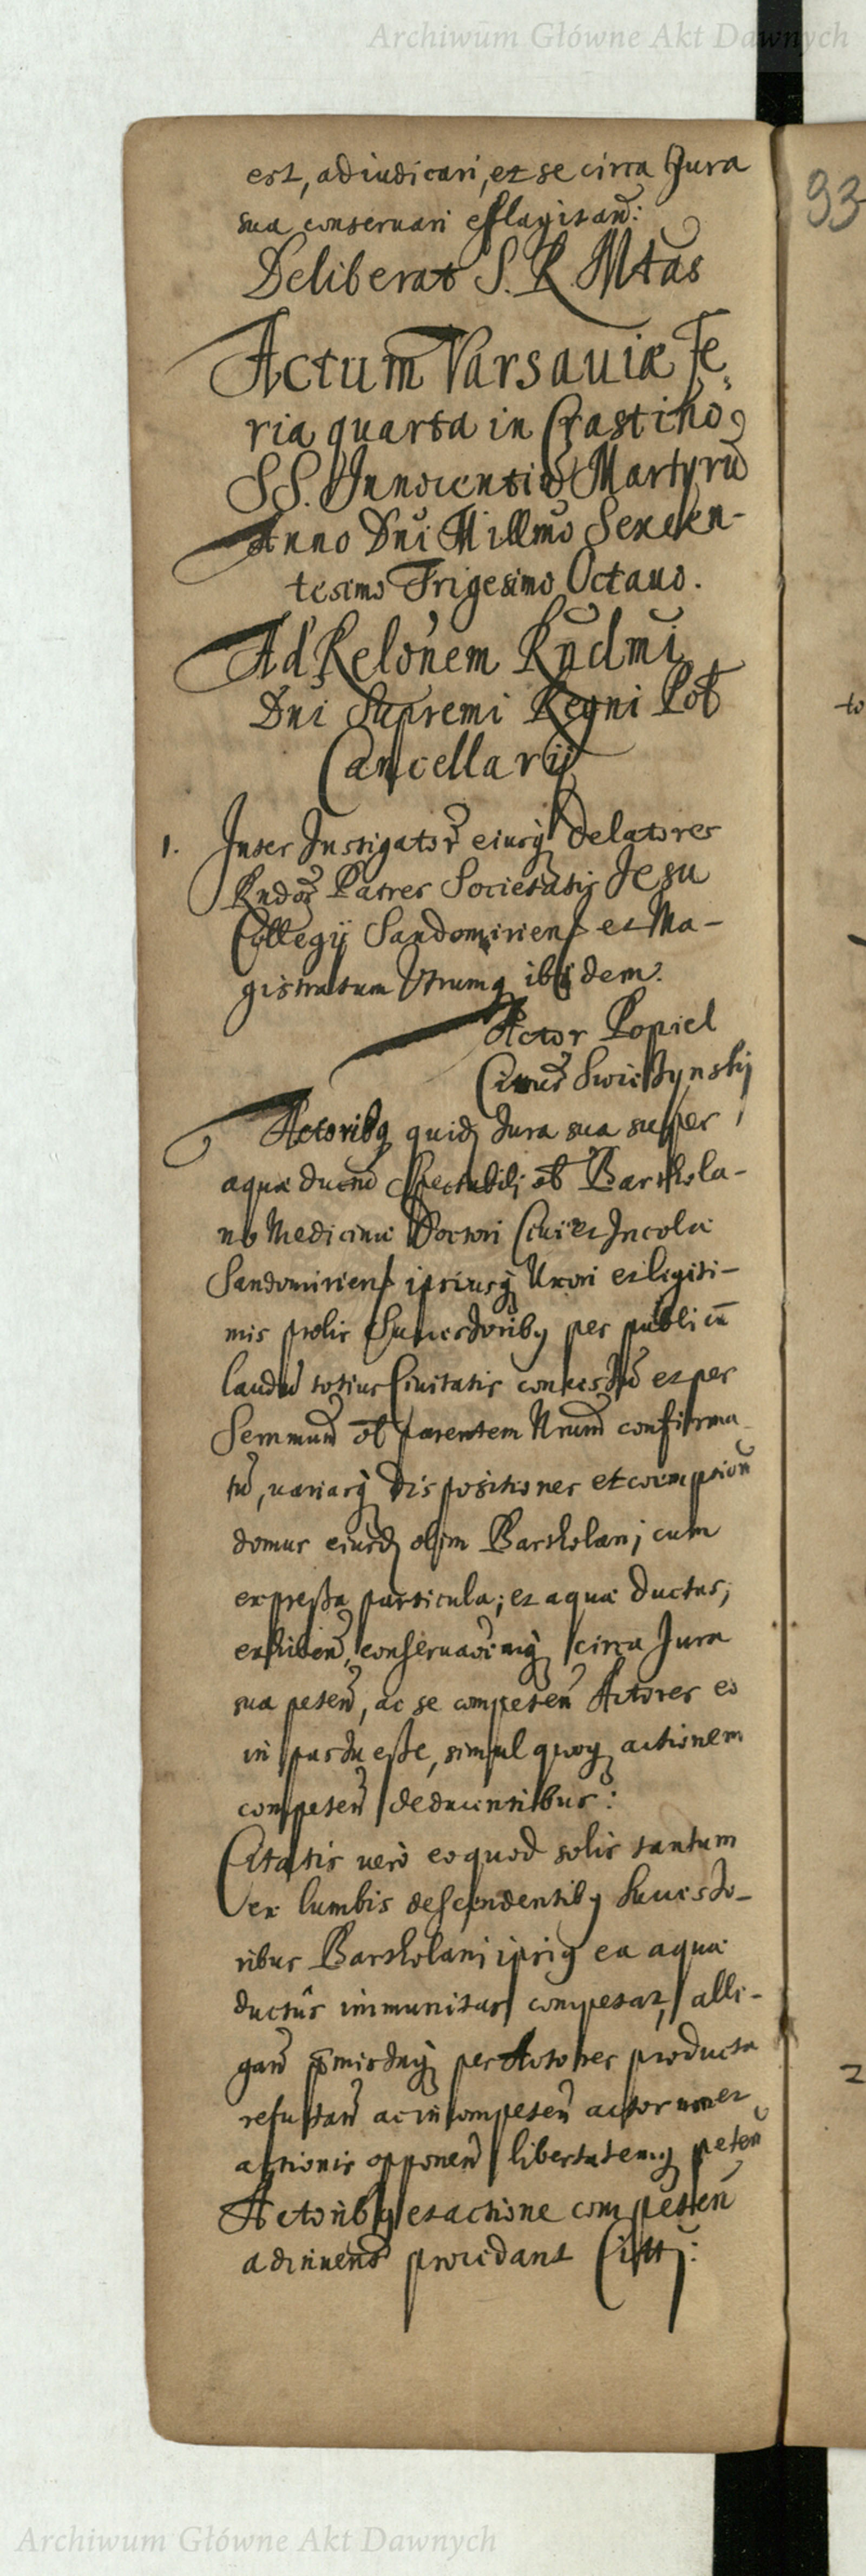 Archiwum Główne Akt Dawnych
est, adiudicari, et se circa Jura
sua conseruari efflagitan̄:
Deliberat S. R. Mtas
93
Actum Varsauiæ Fe,,
ria quarta in Crastino
SS. Innocentiū Martyrū
Anno Dni Millmo Sexcen-
tesimo Trigesimo Octauo.
Ad Relonem Rndmi
Dni Supremi Regni Pol
Cancellarij
1. Inter Instigator eiusq delatores
Rndos Patres Societatis Jesu
Collegij Sandomiriens et Ma-
gistratum Utrumq ibidem.
Actor Popiel
Swieżynskj
Actoribq quid Jura sua super
aquæ ductū Spectabili ol Barthola-
no Medicinæ Doctori Ciui et Incolæ
Sandomiriens ipsiusq Uxori et legiti-
mis prolis Successoribq per publicū
laudū totius Ciuitatis concessū et per
Sermmum ol parentem Nrum confirma
tū, uariasq dispositiones et coemption
domus eiusd olim Bartholanj cum
expressa particula; et aquæ ductus;
exhiben, conseruariq circa Jura
sua peten, ac se competen Actores eo
in passu esse, simul quoq actionem
competen deducentibus:
Citatis uero eo quod solis tantum
ex lumbis descendentibq Successo-
ribus Bartholani ipsiq ea aquæ
ductûs immunitas competat, alle-
gan pmissaq per Actores producta
refutan ac incompeten actorum et
actionis opponen libertatemq peten
Actoribq et actione competen
adinuent procedant Citti:
to
2
Archiwum Główne Akt Dawnych